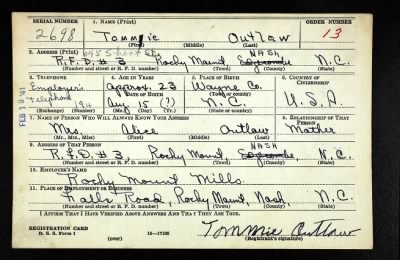 SERIAL NUMBER 1. NAME (Print) ORDER NUMBER
2698 Tommie Outlaw 13
(First) (Middle) (Last)
2. ADDRESS (Print) 645 NASH
R.F.D. # 3 Rocky Mount, Edgecombe, N.C.
(Number and street or R. F. D. number) (Town) (County) (State)
3. TELEPHONE 4. AGE IN YEARS 5. PLACE OF BIRTH 6. COUNTRY OF CITIZENSHIP
Employer's approx. 23 Wayne Co.
Telephone DATE OF BIRTH
194 Aug 15 (?) N.C. U.S.A.
(Exchange) (Number) (Mo.) (Day) (Yr.) (State or country)
FEB 19 '41
7. NAME OF PERSON WHO WILL ALWAYS KNOW YOUR ADDRESS 8. RELATIONSHIP OF THAT PERSON
Mrs. Alice Outlaw Mother
(Mr., Mrs., Miss) (First) (Middle) (Last)
9. ADDRESS OF THAT PERSON NASH
R.F.D. # 3, Rocky Mount, Edgecombe, N.C.
(Number and street or R. F. D. number) (Town) (County) (State)
10. EMPLOYER'S NAME
Rocky Mount Mills
11. PLACE OF EMPLOYMENT OR BUSINESS
Falls Road, Rocky Mount, Nash, N.C.
(Number and street or R. F. D. number) (Town) (County) (State)
I AFFIRM THAT I HAVE VERIFIED ABOVE ANSWERS AND THAT THEY ARE TRUE.
REGISTRATION CARD
D. S. S. Form 1 (over) 16—17105
Tommie Outlaw
(Registrant's signature)